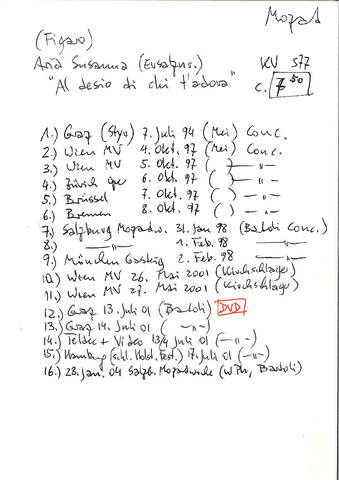 Mozart
(Figaro)
Aria Susanna (Ersatzns.) KV 577
"Al desio di chi t'adora" c. 7 50
1.) Graz (Styr) 7. Juli 94 (Mei) Conc.
2.) Wien MV 4. Okt. 97 (Mei) Conc.
3.) Wien MV 5. Okt. 97 ( ) —"—
4.) Zürich Oper 6. Okt. 97 ( ) —"—
5.) Brüssel 7. Okt. 97 ( ) —"—
6.) Bremen 8. Okt. 97 ( ) —"—
7.) Salzburg Mozartw. 31. Jan 98 (Bartoli Conc.)
8.) —"— 1. Feb. 98 —"—
9.) München Gasteig 2. Feb. 98 —"—
10.) Wien MV 26. Mai 2001 (Kirchschlager)
11.) Wien MV 27. Mai 2001 (Kirchschlager)
12.) Graz 13. Juli 01 (Bartoli) DVD
13.) Graz 14. Juli 01 ( —"—)
14.) Teldec + Video 13/4 Juli 01 (—"—)
15.) Hamburg (schl. Holst. Fest.) 17. Juli 01 (—"—)
16.) 28. Jan. 04 Salzb. Mozartwoche (WPh, Bartoli)